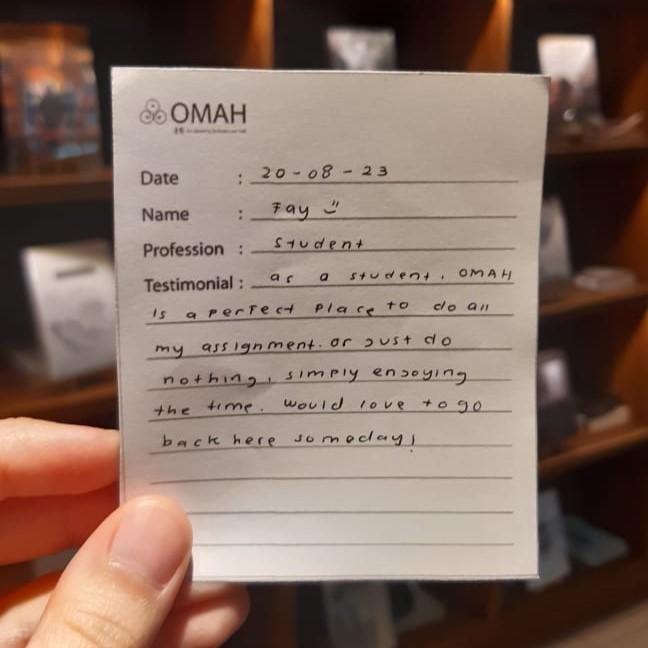 OMAH
Date : 20-08-23
Name : Fay
Profession : Student
Testimonial : as a student, OMAH
is a perfect place to do all
my assignment. or just do
nothing, simply enjoying
the time. would love to go
back here someday!